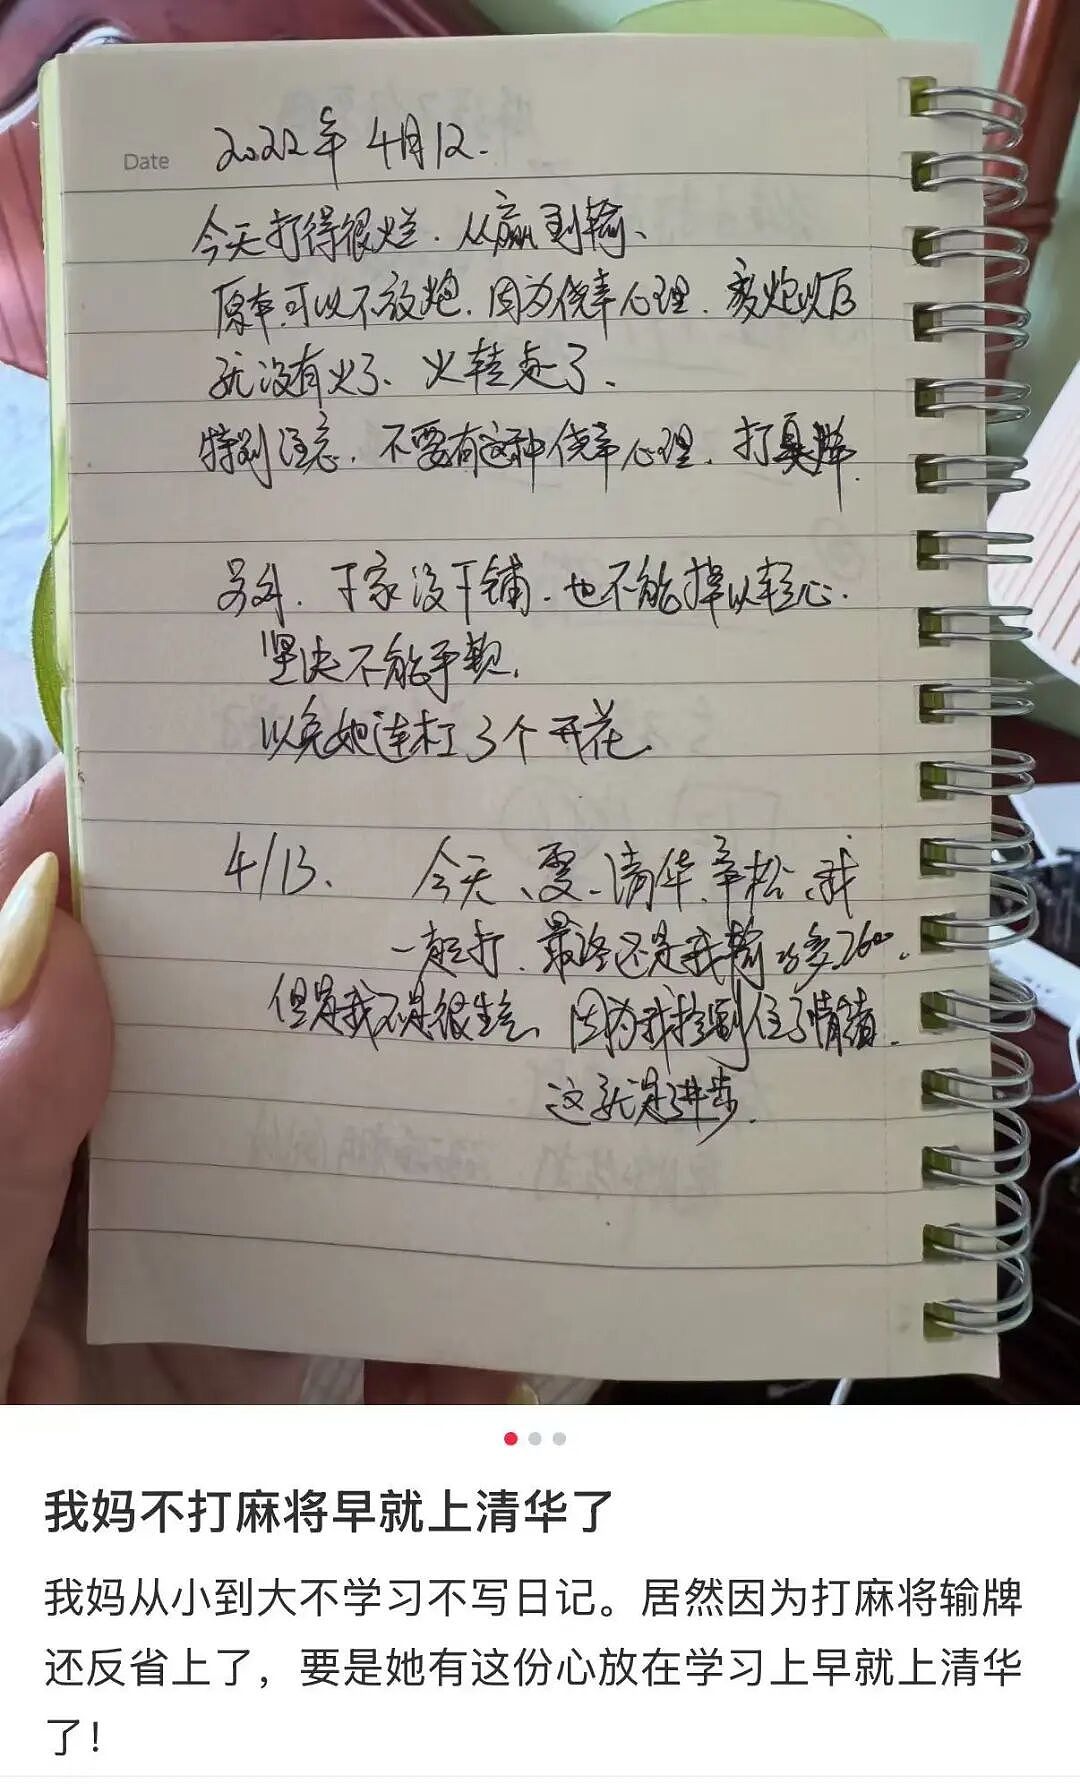 Date 2022年4月12.
今天打得很烂.从赢到输、
原本可以不放炮.因为侥幸心理.放炮以后
就没有火了、火转走了、
特别注意.不要有这种侥幸心理.打臭牌.
另外.下家没下铺.也不能掉以轻心.
坚决不能手软.
以免她连杠3个开花.
4/13、今天、雯、清华、幸松、我
一起打.最终还是我输.
但是我不是很生气、因为我控制住了情绪.
这就是进步.
我妈不打麻将早就上清华了
我妈从小到大不学习不写日记。居然因为打麻将输牌
还反省上了，要是她有这份心放在学习上早就上清华
了！